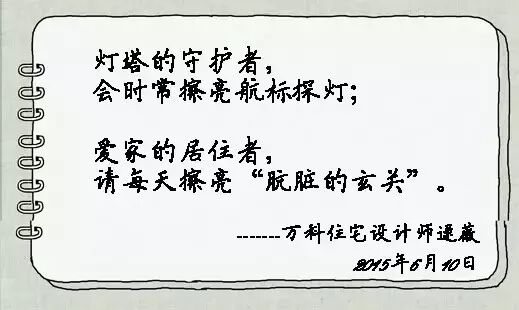 灯塔的守护者，
会时常擦亮航标探灯；
爱家的居住者，
请每天擦亮“肮脏的玄关”。
-------万科住宅设计师逯薇
2015年6月10日